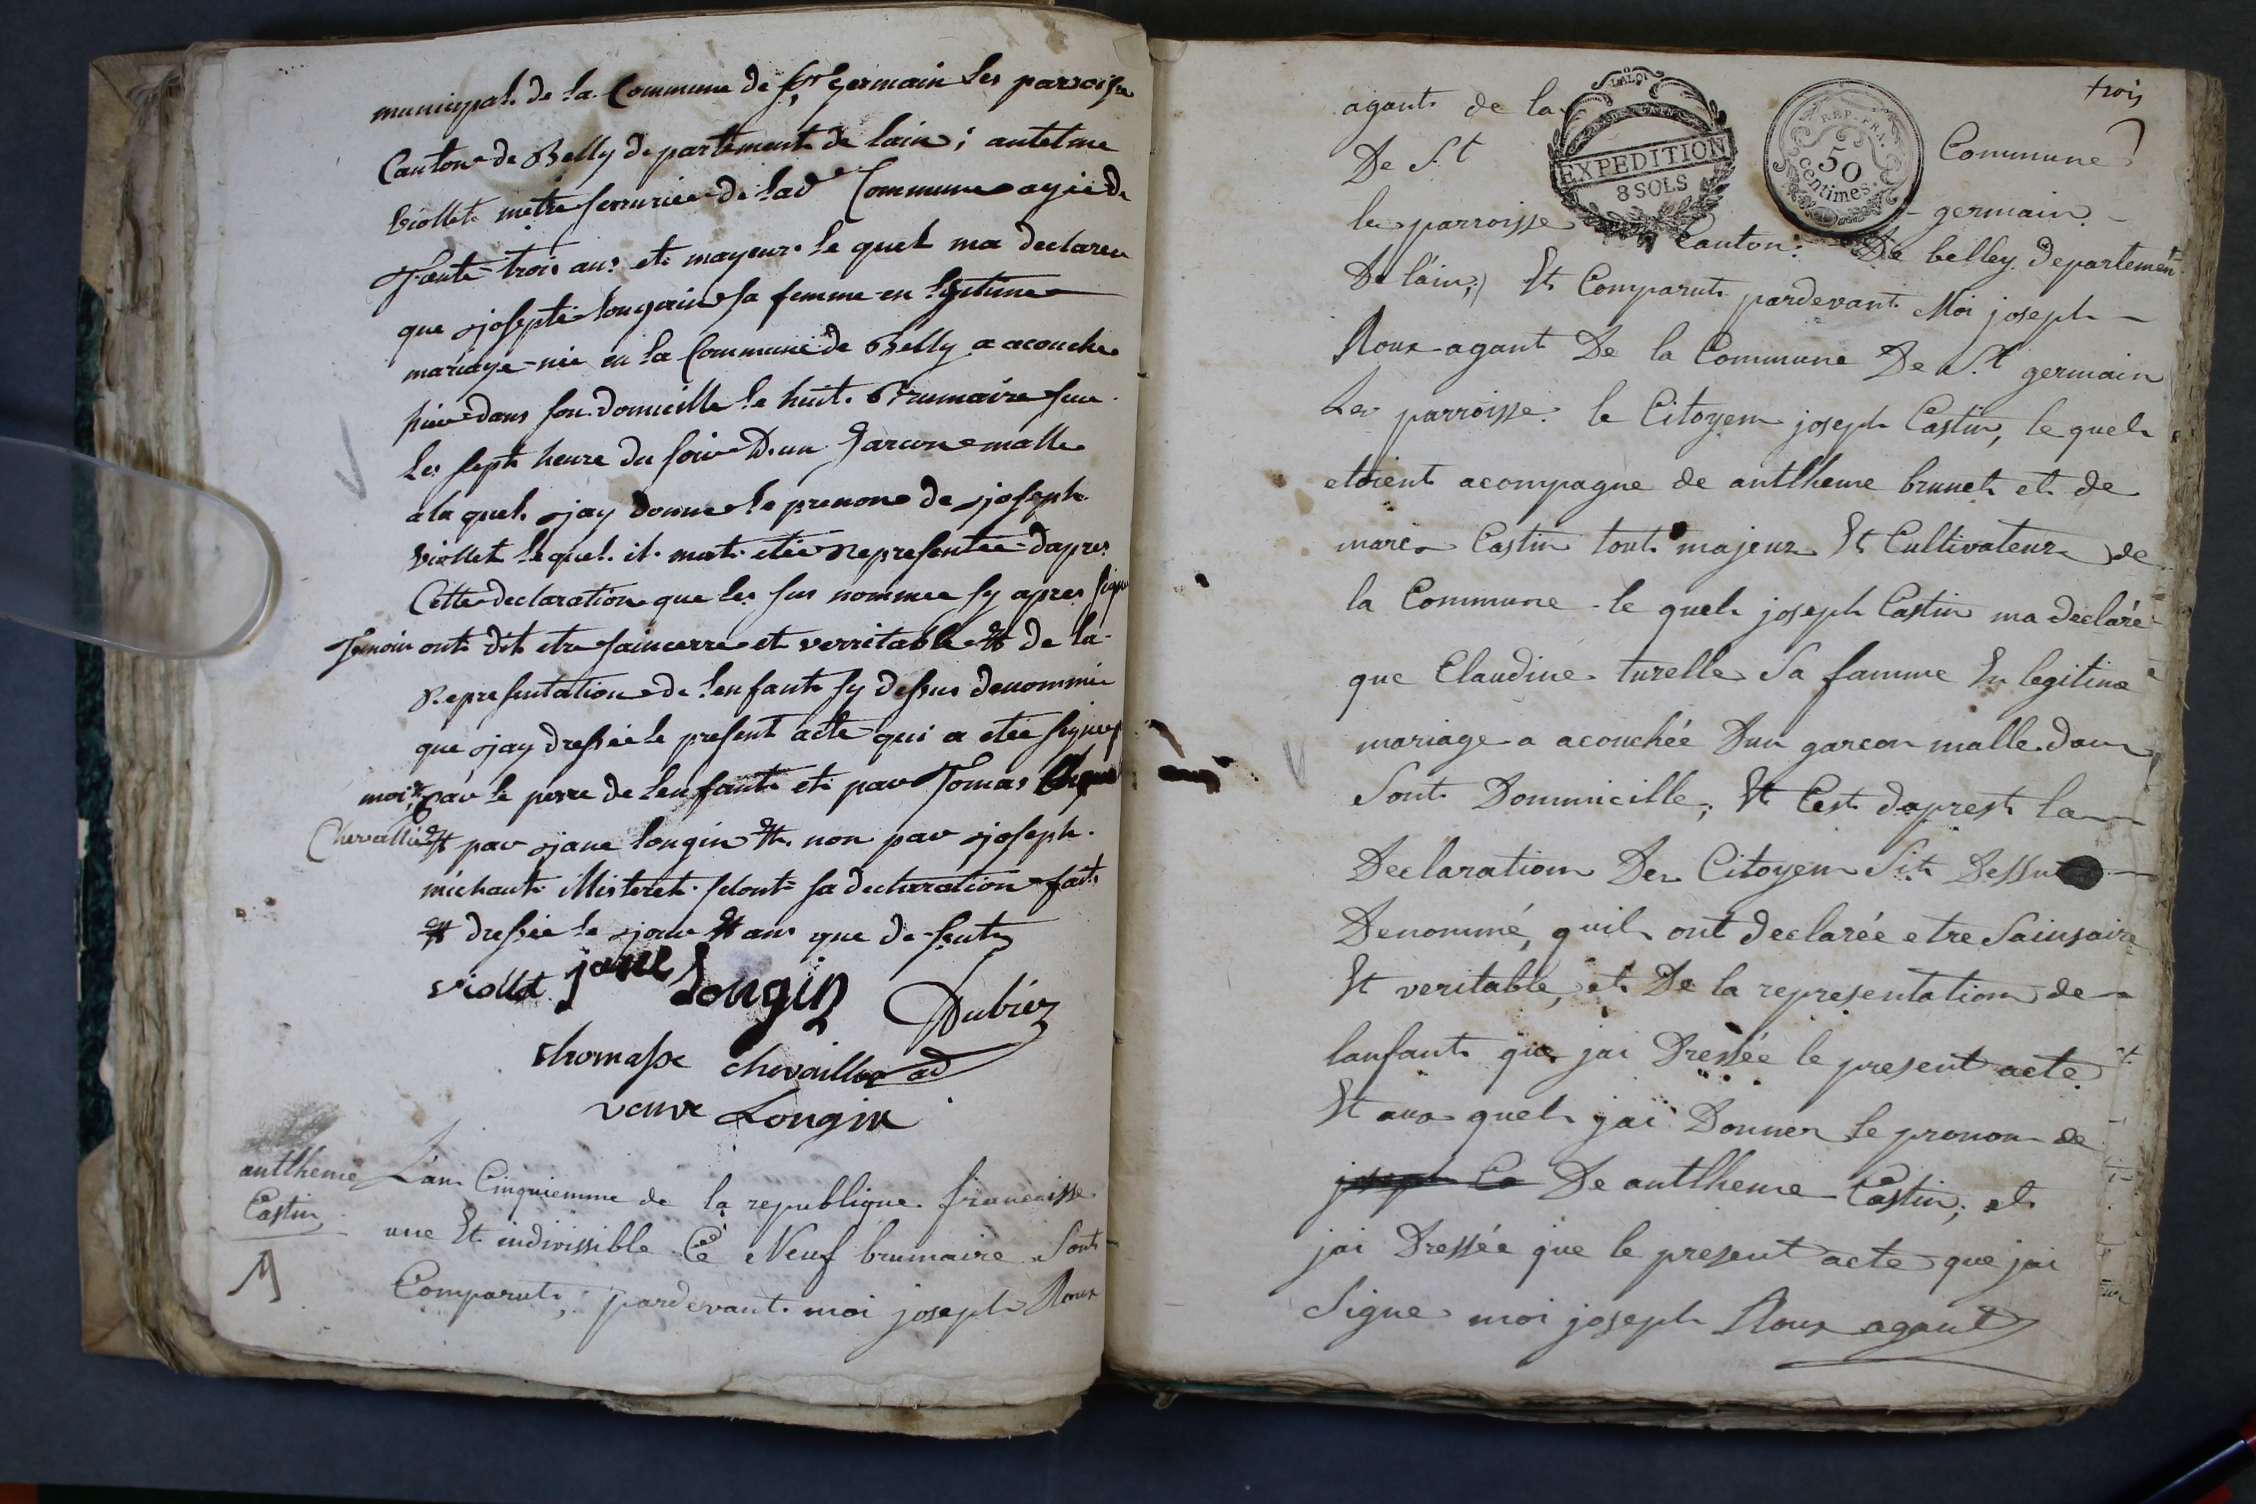 municipal de la Commune de St germain les parroisse
Canton de Belly departement de lain; antelme
viollet metre serrurier de lad Commune agie de
trante trois ans et mayeur le quel ma declaree
que josepte longin sa femme en legitime
mariage nie en la Commune de Belly a acouche
hier dans son domicille le huit Brumaire sur
les sept heure du soir D'un garcon malle
a la quel jay donne le prenone de joseph
viollet le quel il mat etee Representee dapres
Cette declaration que les sus nommee sy apres signe
Temoin ont dit etre saincerre et verritable et de la
Representation de lenfant sy dessus denommie
que jay dressee le present acte qui a etee signee
moi, par le perre de lenfant et par Tomas
Chevallier et par jane longin et non par joseph
michaut Misteret selont sa declaration fait
et dressee le jour et ans que de sut
viollet jane Longin
Dubiez
thomasse chevaillier ad
veuve Longin
antlheme
Castin
L'an Cinquiemme de la republique francaisse
une Et indivissible Cē Neuf brumaire Sont
Comparut, pardevant moi joseph Roux
trois
LA LOI
EXPEDITION
8 SOLS
REP. FRA.
50
centimes.
agant de la Commune
De S.t germain
les parroisse Canton De belley Departement
De l'ain; Et Comparut pardevant Moi joseph
Roux agant De la Commune De S.t germain
Les parroisse le Citoyen joseph Castin, le quel
etoient acompagne de antlheme brunet et de
marc Castin tout majeur Et Cultivateur de
la Commune le quel joseph Castin ma declaré
que Claudine turelle Sa famme En legitime
mariage a acouchée Dun garcon malle dans
Sont Dommicille, Et Cest daprest la
Declaration Des Citoyen Sit Dessu
Denommé, quil ont declarée etre Sainsaire
Et veritable, et De la representation de
lanfant que jai Dressée le present acte
Et aux quel jai Donner le pronon de
joseph Ca De antlheme Castin, et
jai Dressée que le present acte que jai
Signe moi joseph Roux agant